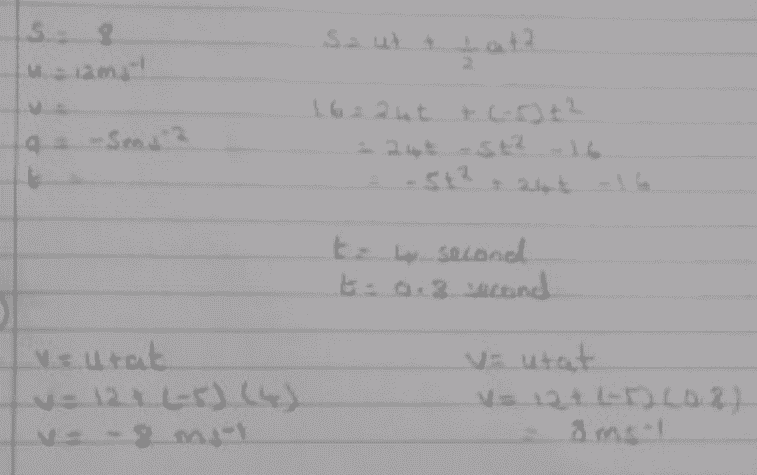 S = 8
u = 12ms⁻¹
v =
a = -5ms⁻²
t =
S = ut + 1/2 at²
16 = 24t + (-5)t²
= 24t - 5t² - 16
= -5t² + 24t - 16
t = 4 second
t = 0.8 second
)
v = u+at
v = 12 + (-5) (4)
v = -8 ms⁻¹
v = u+at
v = 12 + (-5) (0.8)
= 8ms⁻¹